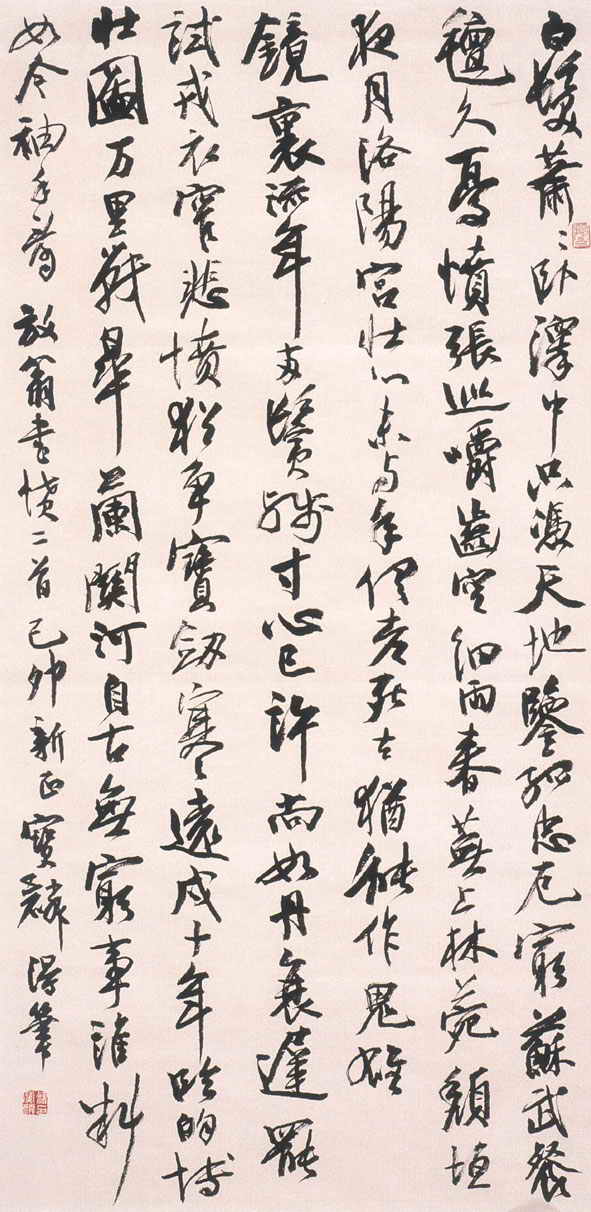 白髮蕭〻卧澤中只憑天地鑒孤忠厄窮蘇武餐
氊久憂憤張巡嚼齒空細雨春蕪上林苑頹垣
夜月洛陽宮壯心未與年俱老死去猶能作鬼雄
鏡裏流年兩鬢殘寸心已許尚如丹衰遲罷
試戎衣窄悲憤猶爭寶劍寒遠戍十年臨的博
壯圖万里戰皋蘭關河自古無窮事誰料
如今袖手看 放翁書憤二首己卯新正寶麟得筆